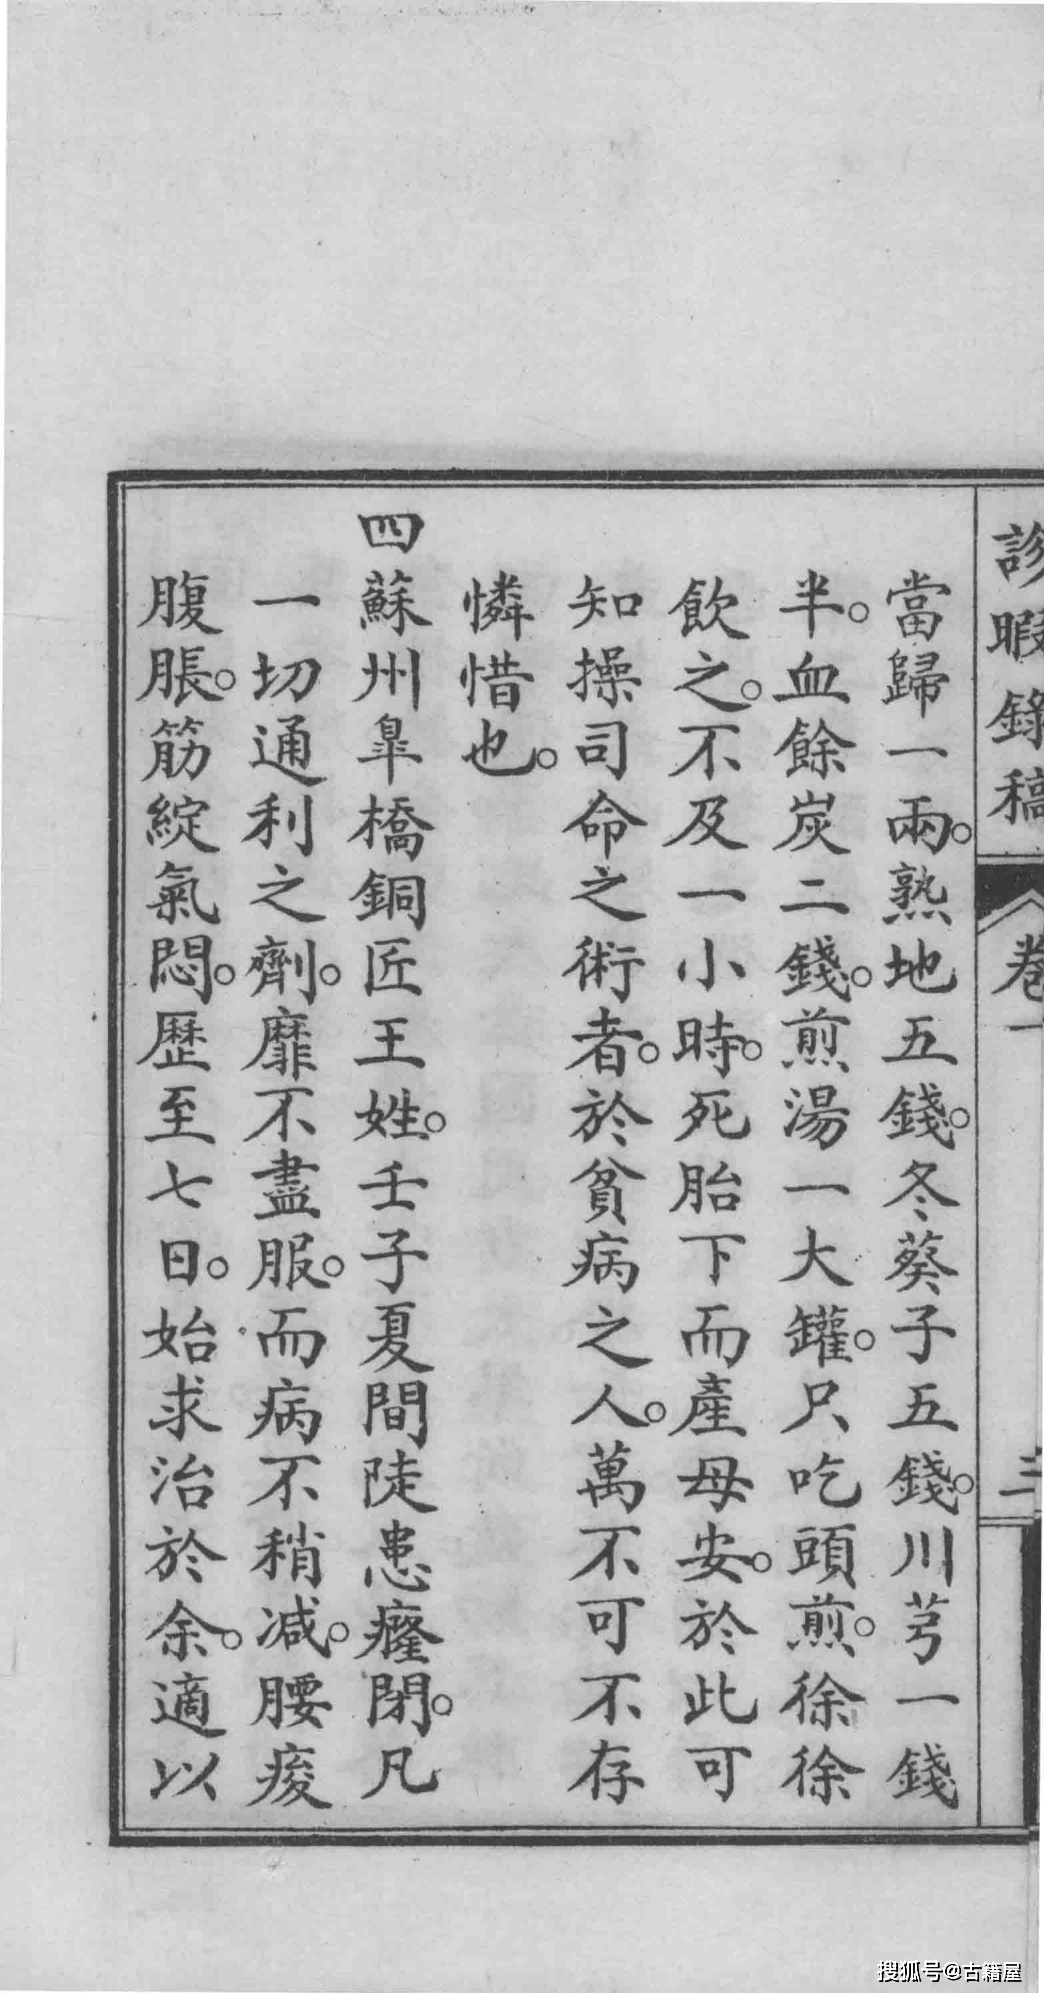 診暇錄稿 卷一 三
當歸一兩。熟地五錢。冬葵子五錢。川芎一錢
半。血餘炭二錢。煎湯一大罐。只吃頭煎。徐徐
飲之。不及一小時。死胎下而產母安。於此可
知操司命之術者。於貧病之人。萬不可不存
憐惜也。
四蘇州皐橋銅匠王姓。壬子夏間陡患癃閉。凡
一切通利之劑。靡不盡服。而病不稍減。腰痠
腹脹。筋綻氣悶。歷至七日。始求治於余。適以
搜狐号@古籍屋